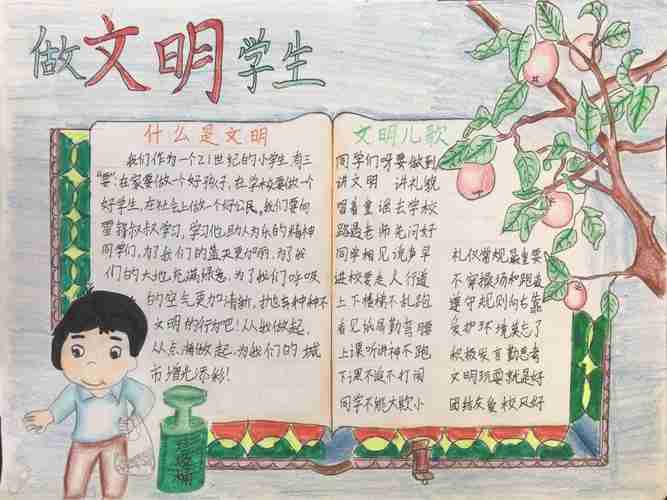 做文明学生
什么是文明
我们作为一个21世纪的小学生,有三
"要":在家要做一个好孩子,在学校要做一个
好学生,在社会上做一个好公民。我们要向
雷锋叔叔学习,学习他助人为乐的精神
同学们,为了我们的蓝天更加丽,为了我
们的大地充满绿意,为了我们呼吸
的空气更加清新,抛弃种种不
文明的行为吧!从我做起,
从点滴做起,为我们的城
市增光添彩!
文明儿歌
同学们呀要做到
讲文明 讲礼貌
唱着童谣去学校
路遇老师先问好
同学相见说声早
进校要走人行道
上下楼梯不乱跑
看见纸屑勤弯腰
上课听讲神不跑
下课不追不打闹
同学不能大欺小
礼仪常规最重要
不穿操场和跑道
遵守规则向右靠
爱护环境莫忘了
积极发言勤思考
文明玩耍就是好
团结友爱校风好
垃圾桶